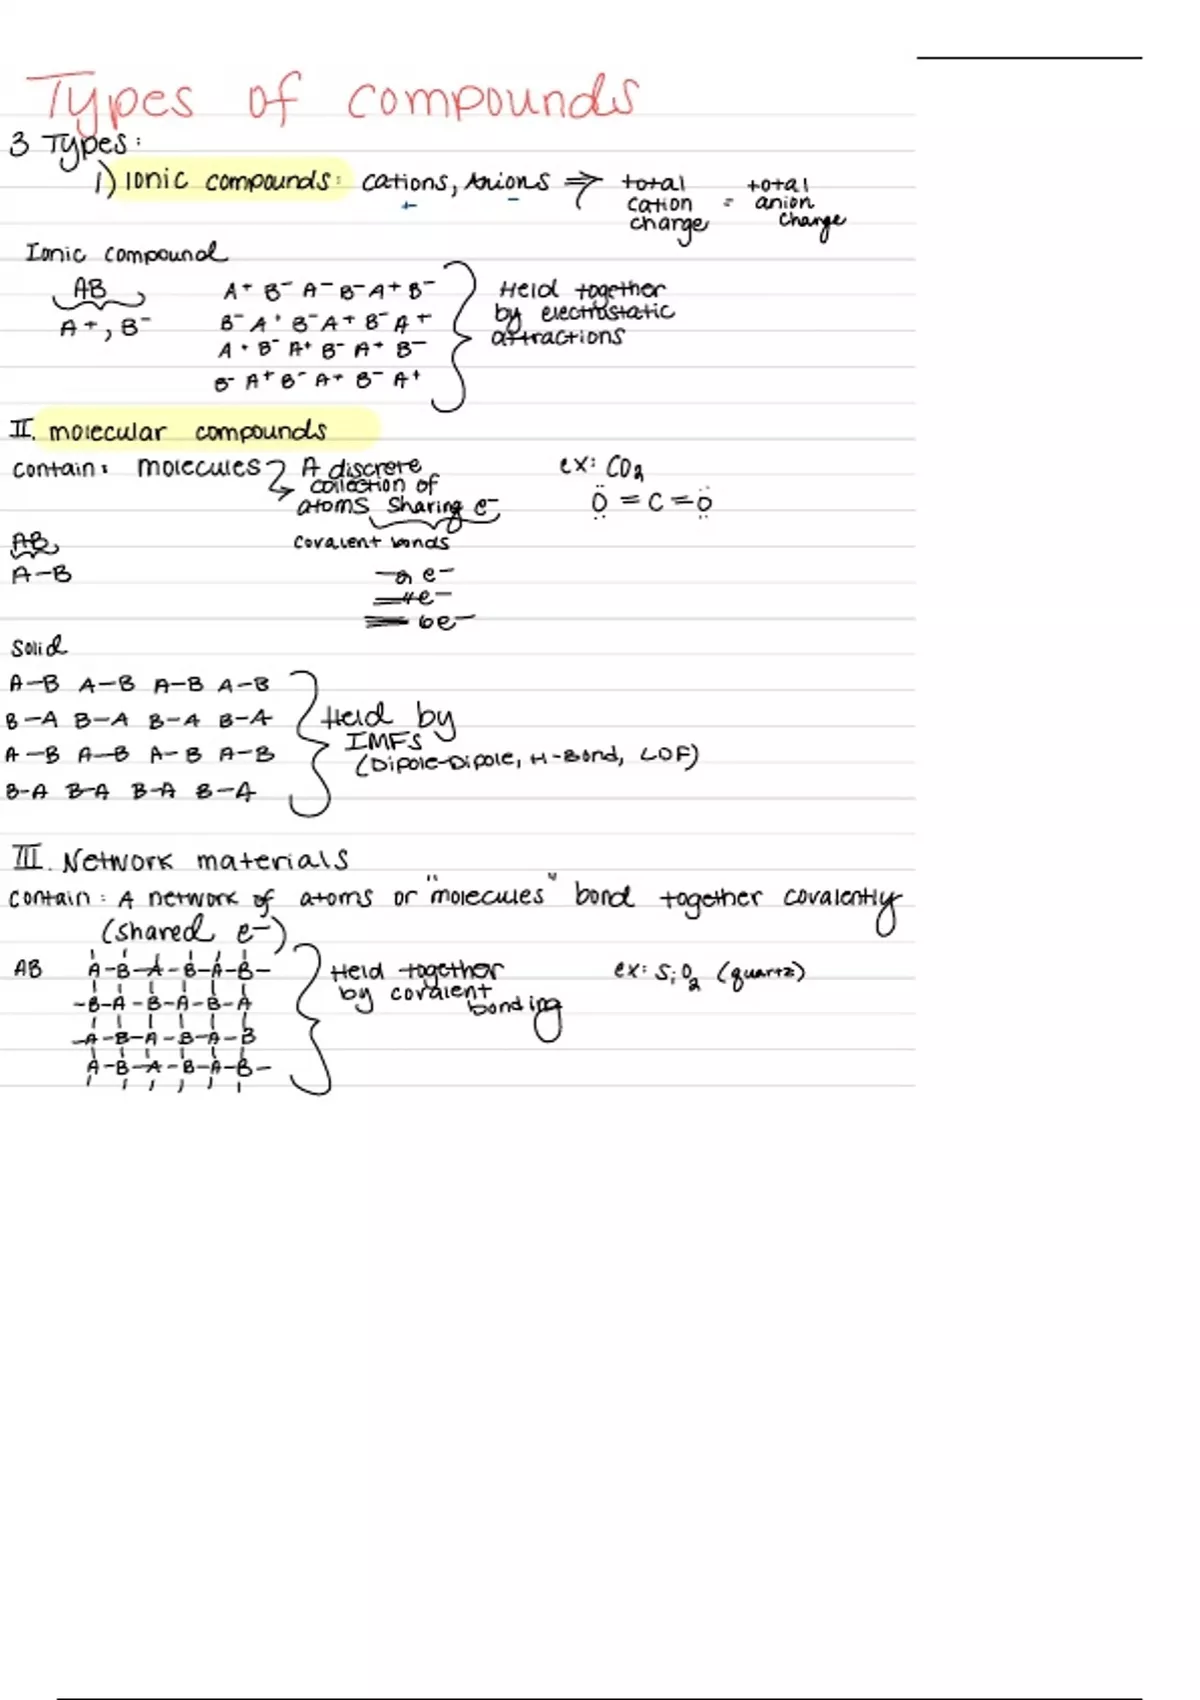 Types of compounds
3 Types:
1) Ionic compounds: cations, Anions ⇒ total cation charge = total anion charge
+ −
Ionic compound
AB
A+, B−
A+ B− A− B− A+ B−
B− A+ B− A+ B− A+
A+ B− A+ B− A+ B−
B− A+ B− A+ B− A+
Held together
by electrostatic
attractions
II. molecular compounds
contain: molecules → A discrete
collection of
atoms sharing e−
covalent bonds
ex: CO2
O = C = O
AB
A−B
— 2 e−
= 4e−
≡ 6e−
Solid
A−B A−B A−B A−B
B−A B−A B−A B−A
A−B A−B A−B A−B
B−A B−A B−A B−A
Held by
IMFS
(Dipole-Dipole, H-Bond, LDF)
III. Network materials
contain: A network of atoms or "molecules" bond together covalently
(shared e−)
AB
A−B−A−B−A−B−
−B−A−B−A−B−A
−A−B−A−B−A−B
A−B−A−B−A−B−
Held together
by covalent
bonding
ex: SiO2 (quartz)